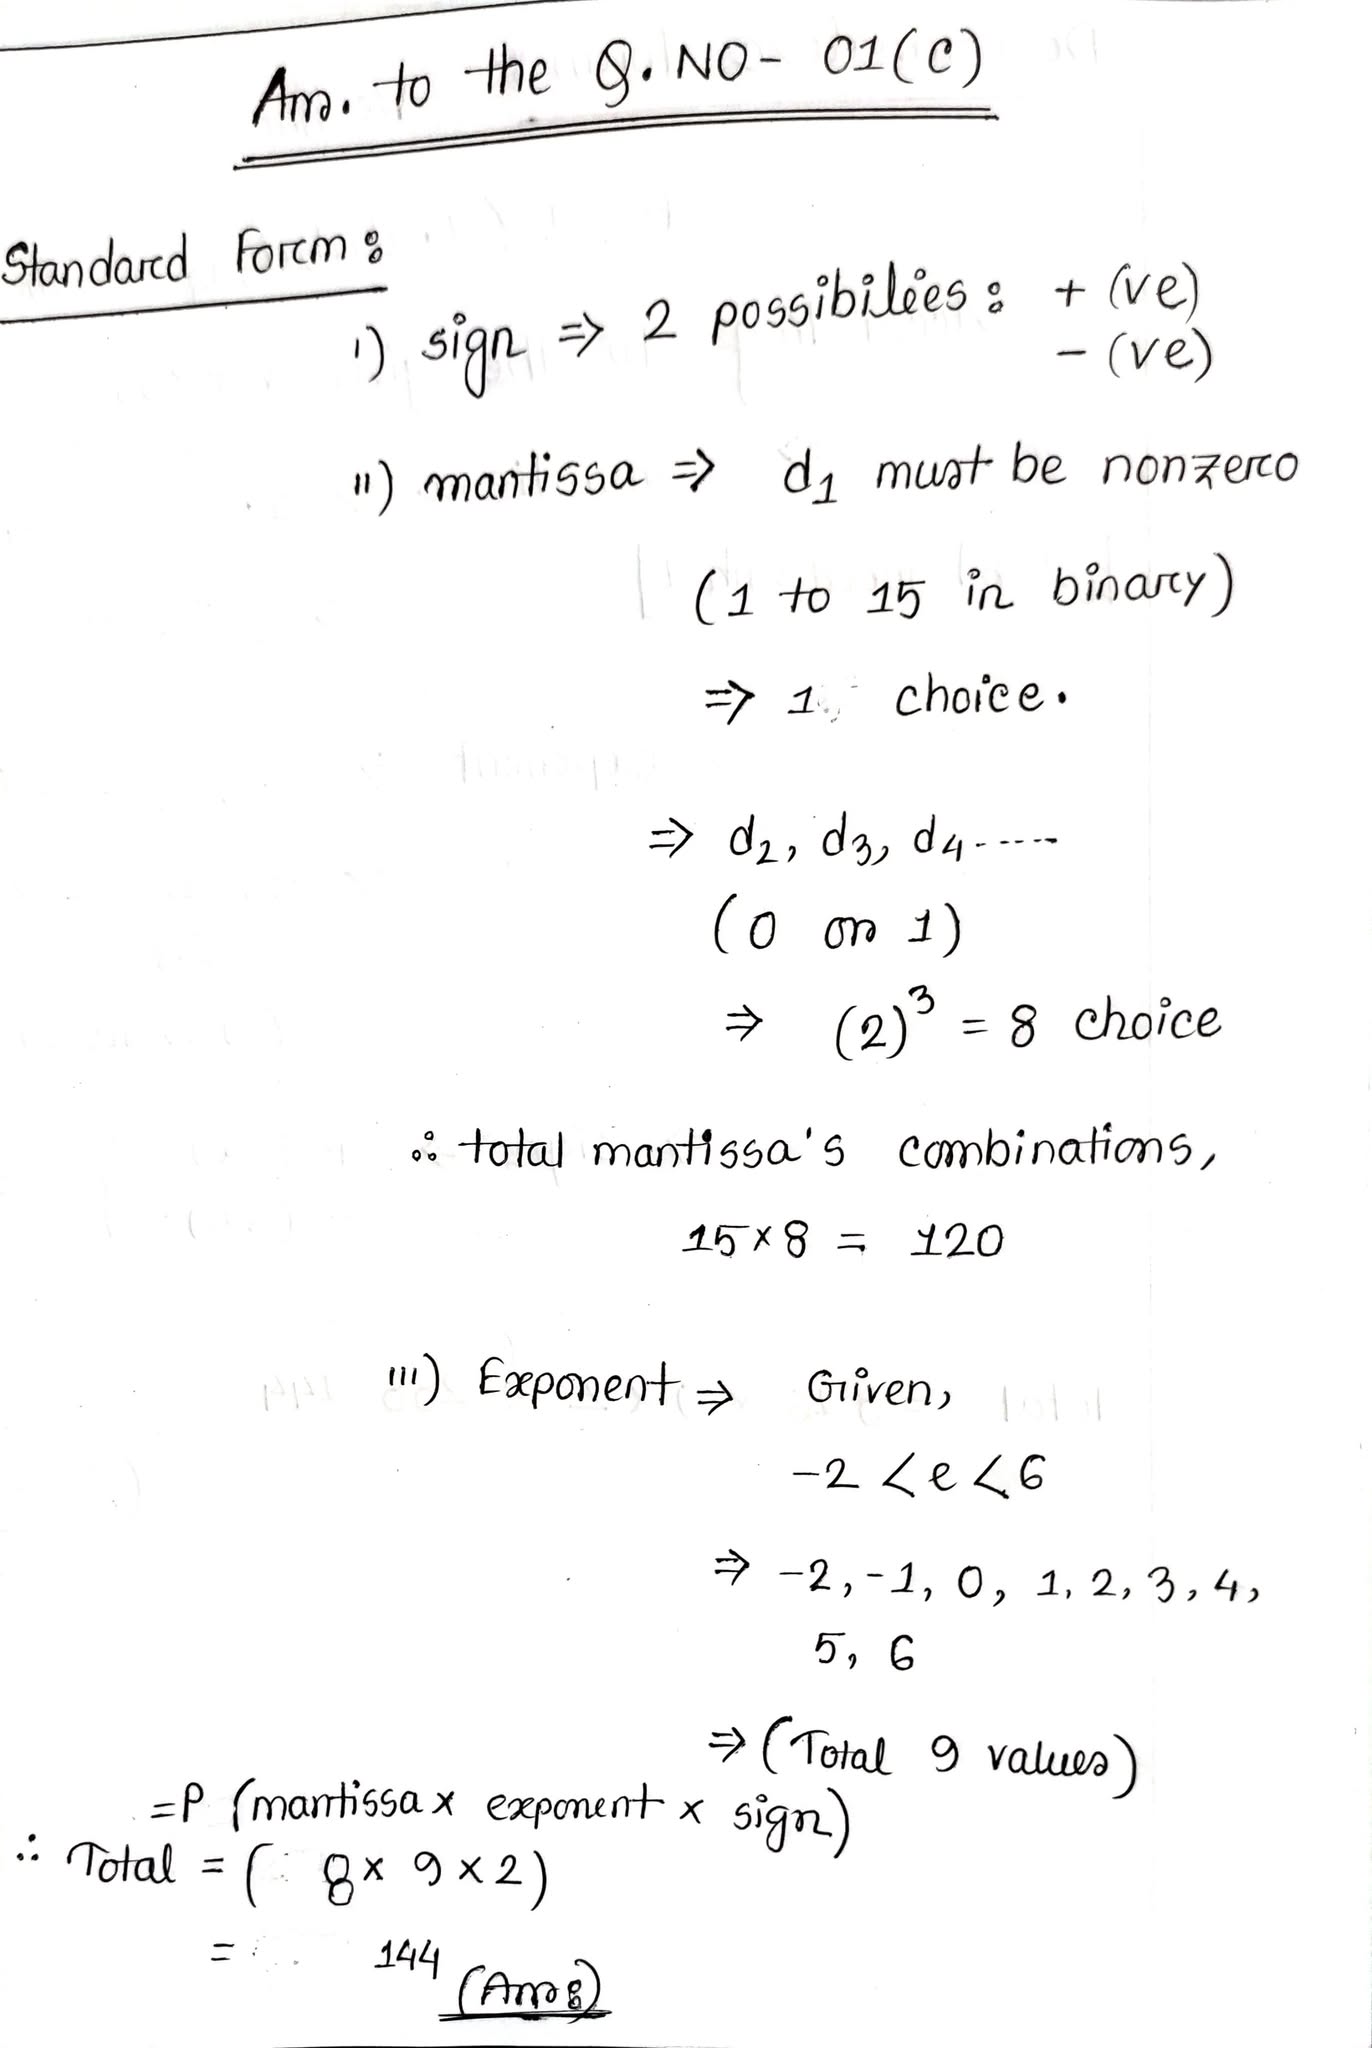 Ans. to the Q. NO- 01(c)
Standard Form:
i) sign => 2 possibilies: + (ve)
- (ve)
ii) mantissa => d1 must be nonzero
(1 to 15 in binary)
=> 1 choice.
=> d2, d3, d4------
(0 or 1)
=> (2)^3 = 8 choice
∴ total mantissa's combinations,
15×8 = 120
iii) Exponent => Given,
-2 < e < 6
=> -2, -1, 0, 1, 2, 3, 4,
5, 6
=> (Total 9 values)
=P (mantissa x exponent x sign)
∴ Total = ( 8 × 9 × 2)
= 144
(Ans:)